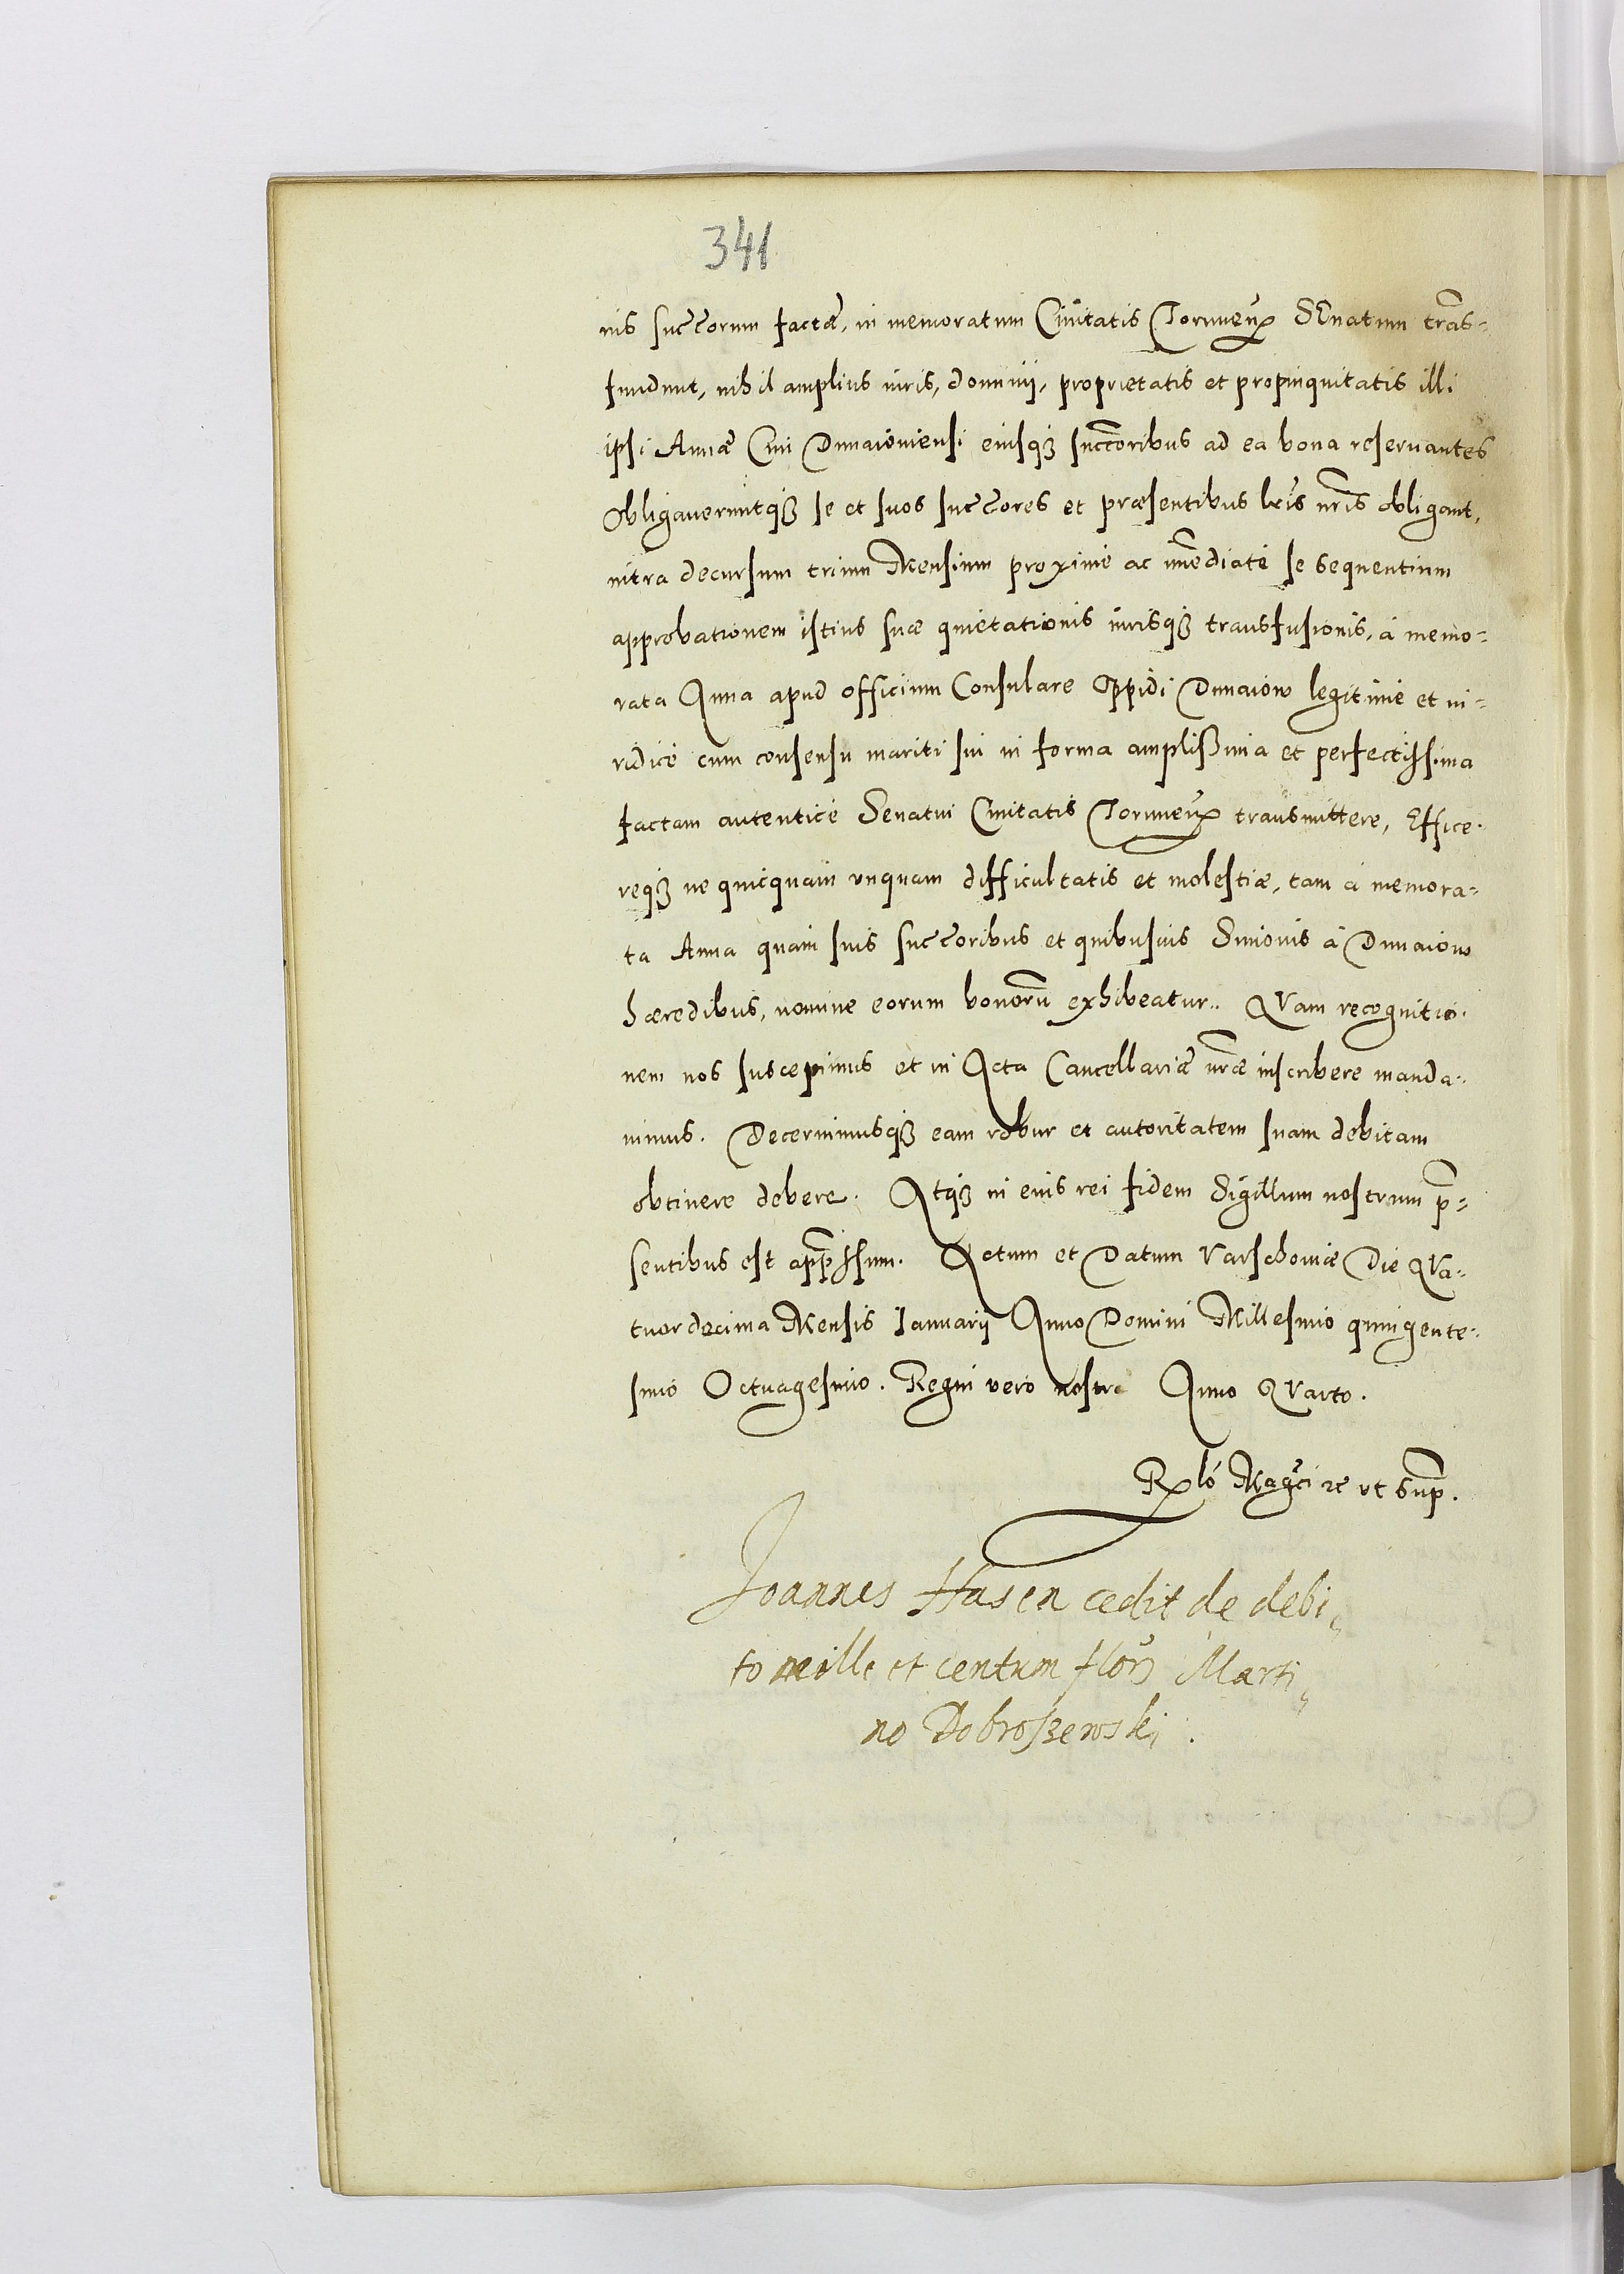 341
nis succorum factæ, in memoratum Ciuitatis Torunen̄ SEnatum trās-
fundunt, nihil amplius iuris, dominij, proprietatis et propinquitatis illi
ipsi Annæ Ciui Dunaiouiensi eiusq3 succoribus ad ea bona reseruantes
Obligaueruntq3 se et suos succores et præsentibus lrīs nr̄is obligant,
intra decursum trium Mensium proxime ac imēdiate se sequentium
approbationem istius suæ quietationis iurisq3 transfusionis, a memo-
rata Anna apud officium Consulare Oppidi Dunaiow legitime et iu-
ridice cum consensu mariti sui in forma amplissima et perfectissima
factam autentice Senatui Ciuitatis Torunen̄ transmittere, Effice-
req3 ne quicquam vnquam difficultatis et molestiæ, tam a memora-
ta Anna quam suis succoribus et quibusuis Simonis a Dunaiow
hæredibus, nomine eorum bonorū exhibeatur.. QVam recognitio-
nem nos suscepimus et in Acta Cancellariæ nr̄æ inscribere manda-
uimus. Decernimusq3 eam robur et autoritatem suam debitam
obtinere debere. Atq3 in eius rei fidem Sigillum nostrum p̄-
sentibus est app̄ssum. Actum et Datum Varschouiæ Die QVa-
tuordecima Mensis Ianuarij Anno Domini Millesimo quingente-
simo Octuagesimo. Regni vero nostri Anno QVarto.
Rlō Magci ꝛc vt sup̄.
Joannes Hasen cedit de debi
to mille et centum flor Marti
no Dobroszewski.